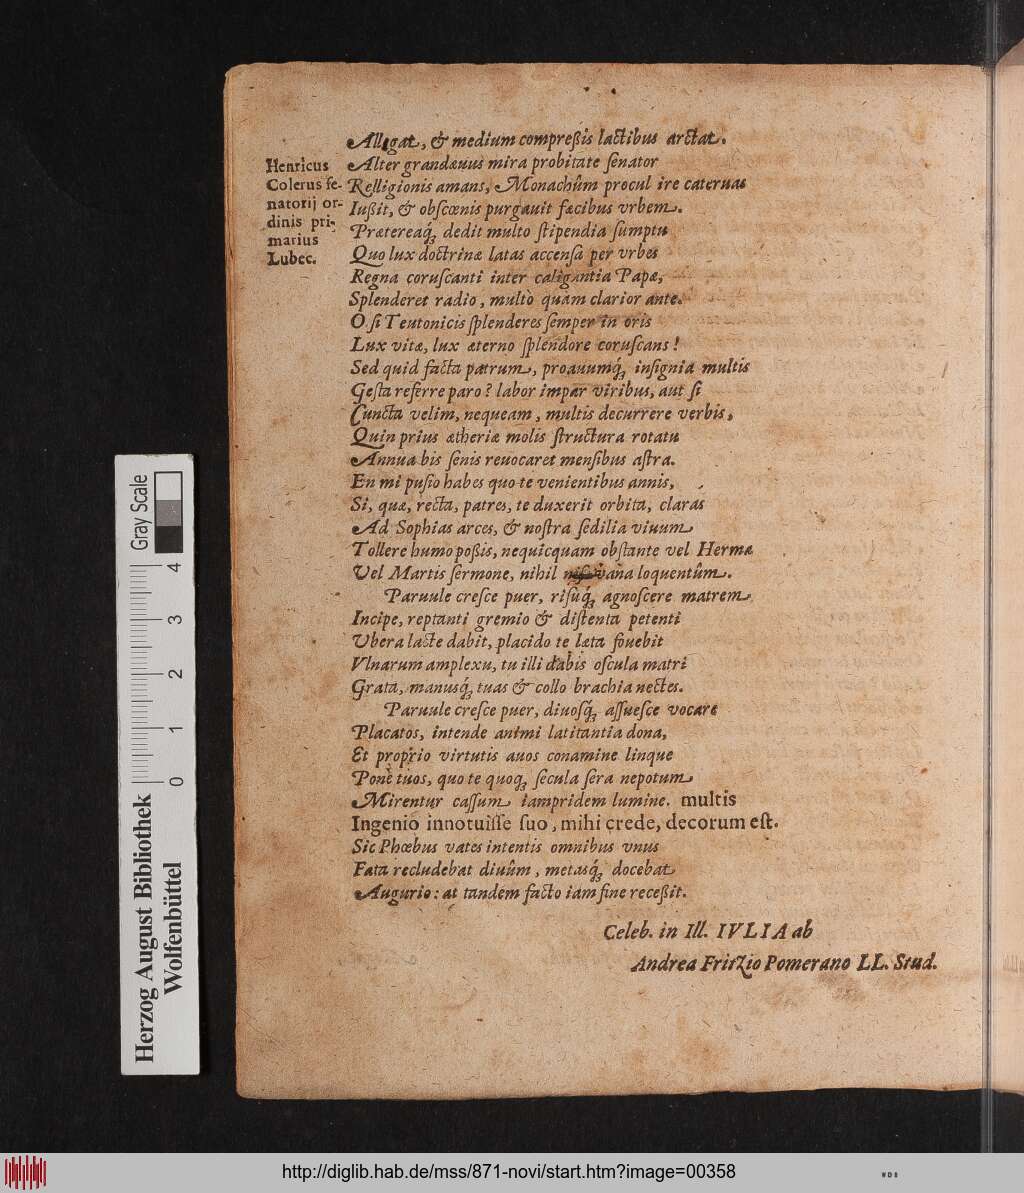 Alligat, & medium compreßis lactibus arctat.
Henricus
Colerus se-
natorij or-
dinis pri-
marius
Lubec.
Alter grandæuus mira probitate senator
Relligionis amans, Monachûm procul ire cateruas
Iußit, & obscœnis purgauit fæcibus vrbem.
Prætereaq́; dedit multo stipendia sumptu
Quo lux doctrinæ latas accensa per vrbes
Regna coruscanti inter caligantia Papæ,
Splenderet radio, multò quàm clarior ante.
O si Teutonicis splenderes semper in oris
Lux vitæ, lux æterno splendore coruscans!
Sed quid facta patrum, proauumq́; insignia multis
Gesta referre paro? labor impar viribus, aut si
Cuncta velim, nequeam, multis decurrere verbis,
Quin prius ætheriæ molis structura rotatu
Annua bis senis reuocaret mensibus astra.
En mi pusio habes quo te venientibus annis,
Si, quæ, recta, patres, te duxerit orbita, claras
Ad Sophias arces, & nostra sedilia viuum
Tollere humo poßis, nequicquam obstante vel Hermæ
Vel Martis sermone, nihil nisi vana loquentûm.
Paruule cresce puer, risúq́; agnoscere matrem
Incipe, reptanti gremio & distenta petenti
Vbera lacte dabit, placido te læta fouebit
Vlnarum amplexu, tu illi dabis oscula matri
Grata, manusq́; tuas & collo brachia nectes.
Paruule cresce puer, diuosq́; assuesce vocare
Placatos, intende animi latitantia dona,
Et proprio virtutis auos conamine linque
Ponè tuos, quo te quoq; secula sera nepotum
Mirentur cassum iampridem lumine. multis
Ingenio innotuisse suo, mihi crede, decorum est.
Sic Phœbus vates intentis omnibus vnus
Fata recludebat diuûm, metasq́; docebat
Augurio: at tandem facto iam fine receßit.
Celeb. in Ill. IVLIA ab
Andrea Fritzio Pomerano LL. Stud.
Gray Scale
0 1 2 3 4
Herzog August Bibliothek
Wolfenbüttel
http://diglib.hab.de/mss/871-novi/start.htm?image=00358